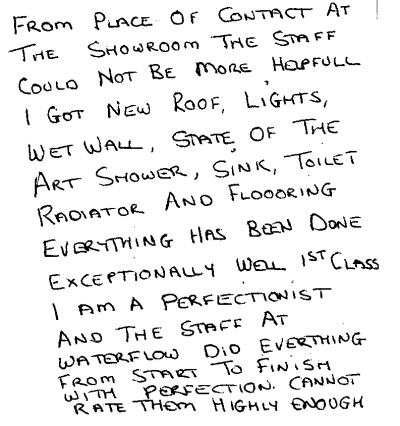 FROM PLACE OF CONTACT AT
THE SHOWROOM THE STAFF
COULD NOT BE MORE HELPFULL
I GOT NEW ROOF, LIGHTS,
WET WALL, STATE OF THE
ART SHOWER, SINK, TOILET
RADIATOR AND FLOOORING
EVERYTHING HAS BEEN DONE
EXCEPTIONALLY WELL 1ST CLASS
I AM A PERFECTIONIST
AND THE STAFF AT
WATERFLOW DID EVERTHING
FROM START TO FINISH
WITH PERFECTION. CANNOT
RATE THEM HIGHLY ENOUGH